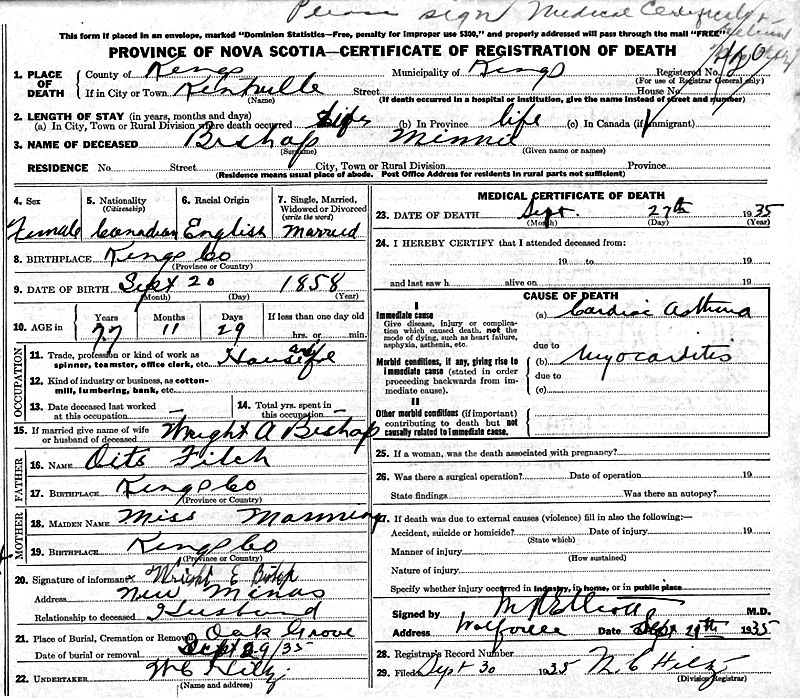 Please sign Medical Certificate &
This form if placed in an envelope, marked "Dominion Statistics—Free, penalty for improper use $300," and properly addressed will pass through the mail "FREE"
PROVINCE OF NOVA SCOTIA—CERTIFICATE OF REGISTRATION OF DEATH
1. PLACE OF DEATH
County of Kings Municipality of Kings Registered No.
(For use of Registrar General only)
If in City or Town Kentville Street House No.
(Name) (If death occurred in a hospital or institution, give the name instead of street and number)
2. LENGTH OF STAY (in years, months and days)
(a) In City, Town or Rural Division where death occurred (b) In Province life (c) In Canada (if immigrant)
3. NAME OF DECEASED Bishop Minnie
(Surname) (Given name or names)
RESIDENCE No. Street City, Town or Rural Division Province
(Residence means usual place of abode. Post Office Address for residents in rural parts not sufficient)
4. Sex 5. Nationality (Citizenship) 6. Racial Origin 7. Single, Married, Widowed or Divorced (write the word)
Female Canadian English Married
8. BIRTHPLACE Kings Co
(Province or Country)
9. DATE OF BIRTH Sept 20 1858
(Month) (Day) (Year)
10. AGE in Years Months Days If less than one day old
77 11 29 hrs. or min.
OCCUPATION
11. Trade, profession or kind of work as spinner, teamster, office clerk, etc. Housewife
12. Kind of industry or business, as cotton-mill, lumbering, bank, etc.
13. Date deceased last worked at this occupation
14. Total yrs. spent in this occupation
15. If married give name of wife or husband of deceased Wright A Bishop
FATHER
16. NAME Oits Fitch
17. BIRTHPLACE Kings Co
(Province or Country)
MOTHER
18. MAIDEN NAME Miss Manning
19. BIRTHPLACE Kings Co
(Province or Country)
20. Signature of informant x Wright E Bishop
Address New Minas
Relationship to deceased Husband
21. Place of Burial, Cremation or Removal Oak Grove
Date of burial or removal Sept 29/35
22. UNDERTAKER W C Hiltz
(Name and address)
MEDICAL CERTIFICATE OF DEATH
23. DATE OF DEATH Sept. 27th 1935
(Month) (Day) (Year)
24. I HEREBY CERTIFY that I attended deceased from:
19 to 19
and last saw h alive on 19
CAUSE OF DEATH
I
Immediate cause (a) Cardiac Asthma
Give disease, injury or complication which caused death, not the mode of dying, such as heart failure, asphyxia, asthenia, etc.
due to
Morbid conditions, if any, giving rise to immediate cause (stated in order proceeding backwards from immediate cause).
(b) Myocarditis
due to
(c)
II
Other morbid conditions (if important) contributing to death but not causally related to immediate cause.
25. If a woman, was the death associated with pregnancy?
26. Was there a surgical operation? Date of operation 19
State findings Was there an autopsy?
27. If death was due to external causes (violence) fill in also the following:—
Accident, suicide or homicide? Date of injury 19
(State which)
Manner of injury
(How sustained)
Nature of injury
Specify whether injury occurred in industry, in home, or in public place
Signed by M R Elliott M.D.
Address Wolfville Date Sept 29th 1935
28. Registrar's Record Number
29. Filed Sept 30 1935 W. C Hiltz
(Division Registrar)